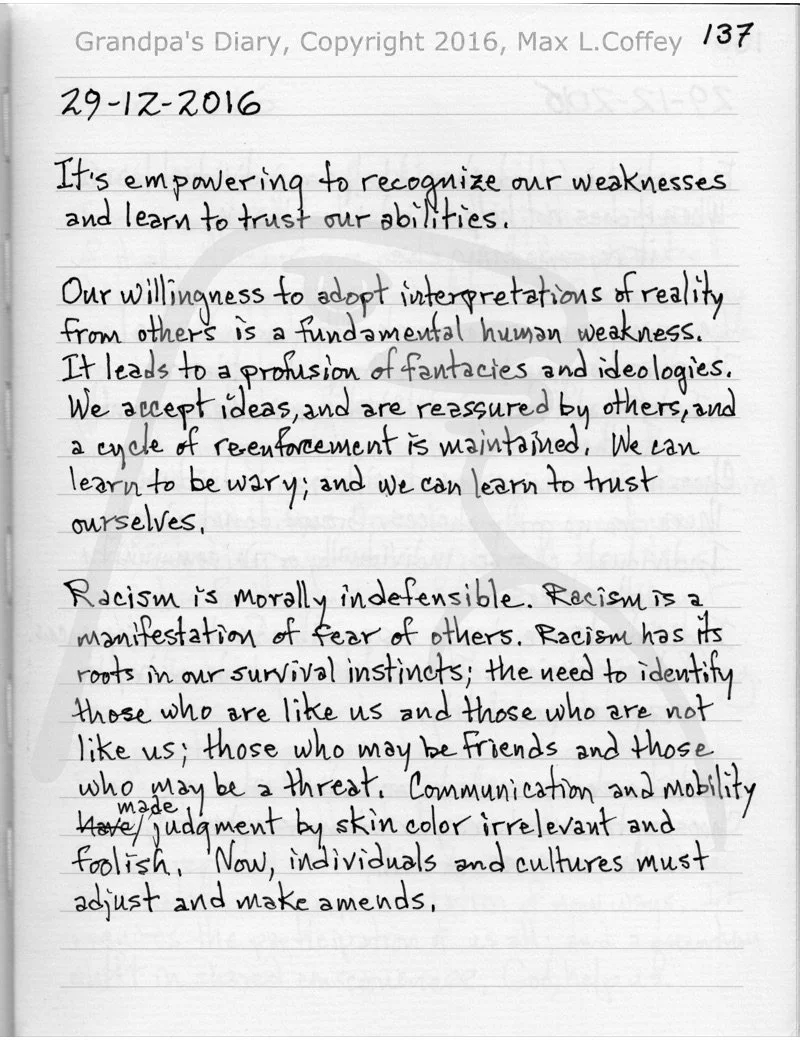 Grandpa's Diary, Copyright 2016, Max L.Coffey 137
29-12-2016
It's empowering to recognize our weaknesses
and learn to trust our abilities.
Our willingness to adopt interpretations of reality
from others is a fundamental human weakness.
It leads to a profusion of fantacies and ideologies.
We accept ideas, and are reassured by others, and
a cycle of re-enforcement is maintained. We can
learn to be wary; and we can learn to trust
ourselves.
Racism is morally indefensible. Racism is a
manifestation of fear of others. Racism has its
roots in our survival instincts; the need to identify
those who are like us and those who are not
like us; those who may be friends and those
who may be a threat. Communication and mobility
made
have/judgment by skin color irrelevant and
foolish. Now, individuals and cultures must
adjust and make amends.